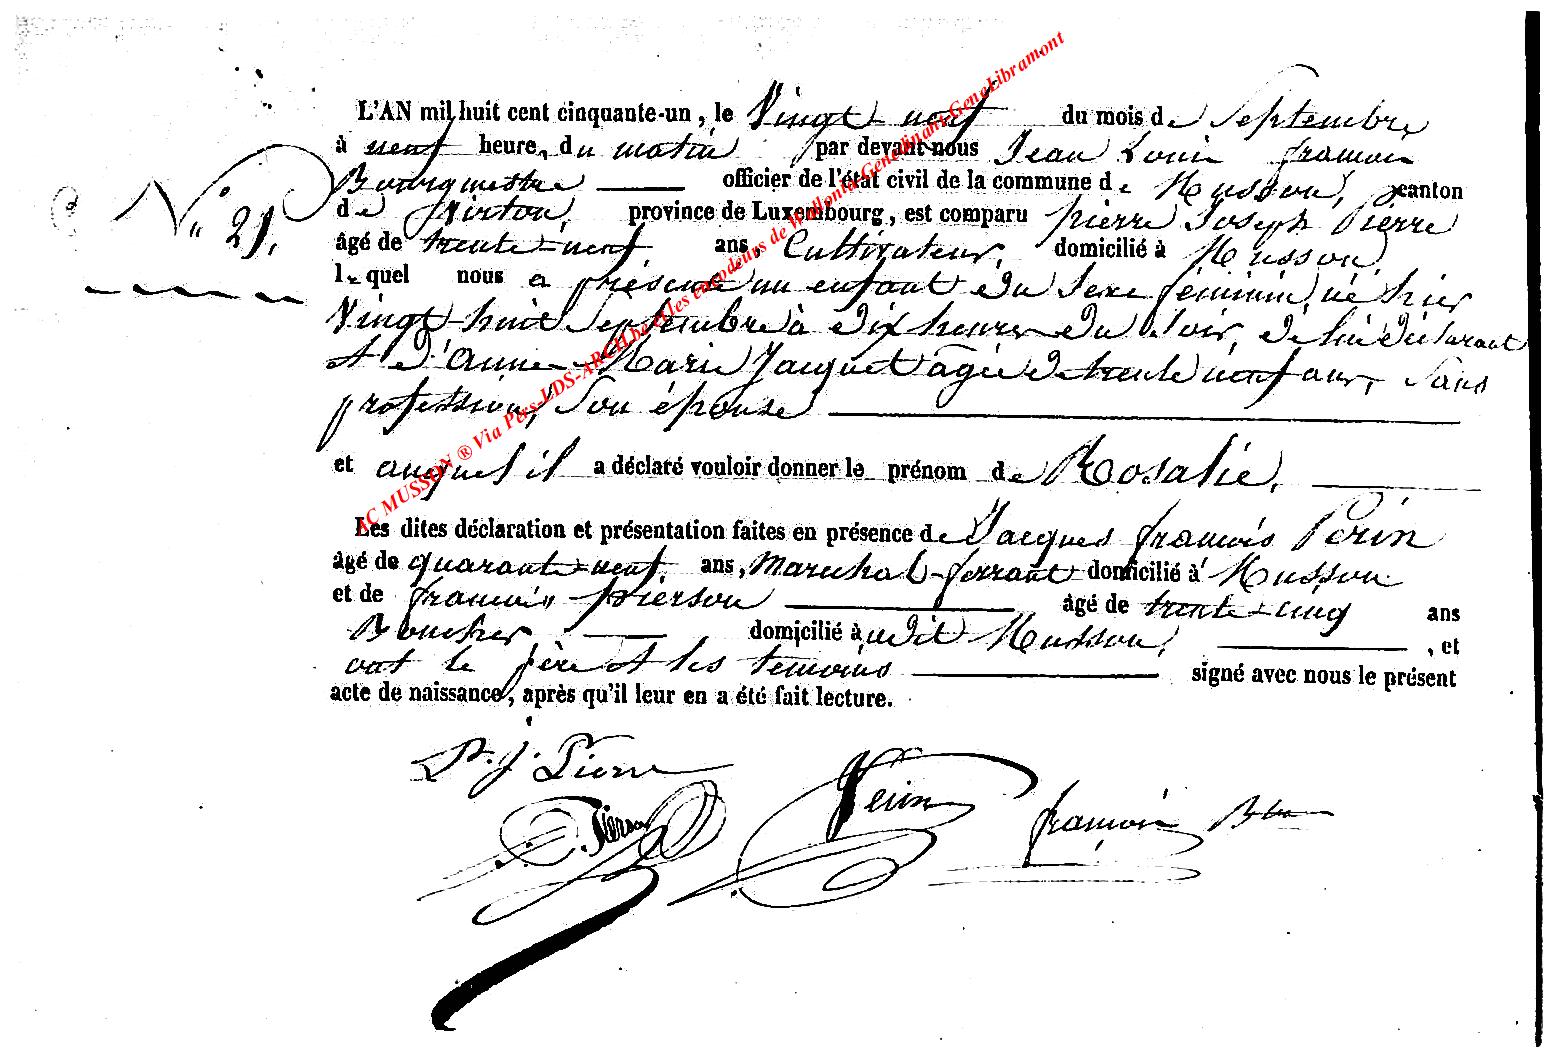 L'AN mil huit cent cinquante-un, le Vingt neuf du mois de Septembre
à neuf heures du matin par devant nous Jean Louis françois
Bourgmestre officier de l'état civil de la commune de Musson, canton
N° 21.
de Virton, province de Luxembourg, est comparu pierre Joseph Pierre
âgé de trente-neuf ans, Cultivateur, domicilié à Musson,
lequel nous a présenté un enfant du Sexe féminin, né hier
Vingt huit Septembre à dix heures du Soir, de lui déclarant
et d'Anne Marie Jacquet agée de trente neuf ans, Sans
profession, Son épouse
et auquel il a déclaré vouloir donner le prénom de Rosalie,
Les dites déclaration et présentation faites en présence de Jacques françois Perin
âgé de quarante-neuf, ans, Marechal-ferrant domicilié à Musson
et de françois pierson âgé de trente-cinq ans
Boucher domicilié à udit Musson, , et
ont le père et les temoins signé avec nous le présent
acte de naissance, après qu'il leur en a été fait lecture.
P. J. Pierre
Pierson Perin françois
AC MUSSON ® Via Pers-LDS-ARCH.be et les encodeurs de Wallonia-Genedinant-GeneLibramont